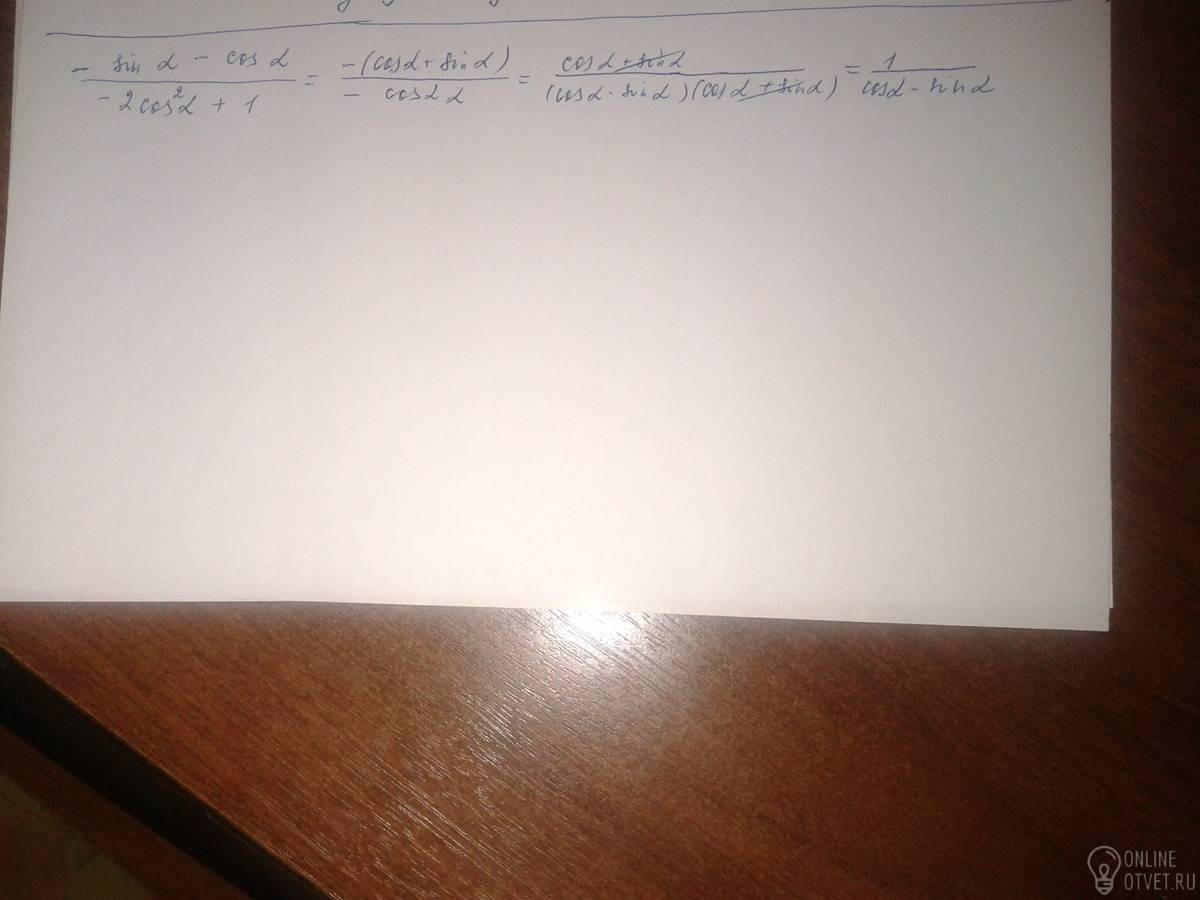 - sin α - cos α / -2cos²α + 1 = -(cosα + sinα) / - cos2α = cosα + sinα / (cosα - sinα)(cosα + sinα) = 1 / cosα - sinα
ONLINE
OTVET.RU